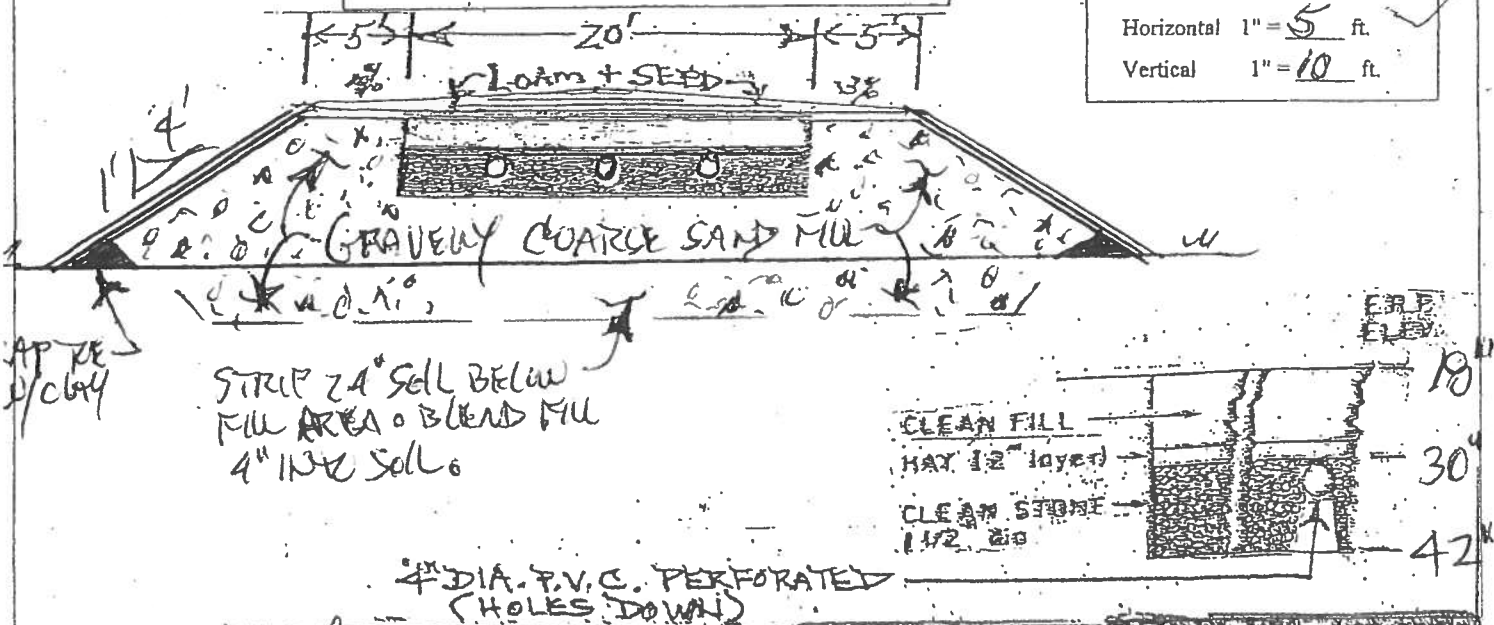 5' 20' 5'
Horizontal 1" = 5 ft.
Vertical 1" = 10 ft.
LOAM + SEED
3%
4'
1'
GRAVELLY COARSE SAND FILL
W/CLAY
STRIP 24" SOIL BELOW
FILL AREA & BLEND FILL
4" INTO SOIL.
E.R.P.
ELEV.
18"
CLEAN FILL
HAY (2" layer)
30"
CLEAN STONE
1 1/2" dia
42"
4" DIA. P.V.C. PERFORATED
(HOLES DOWN)